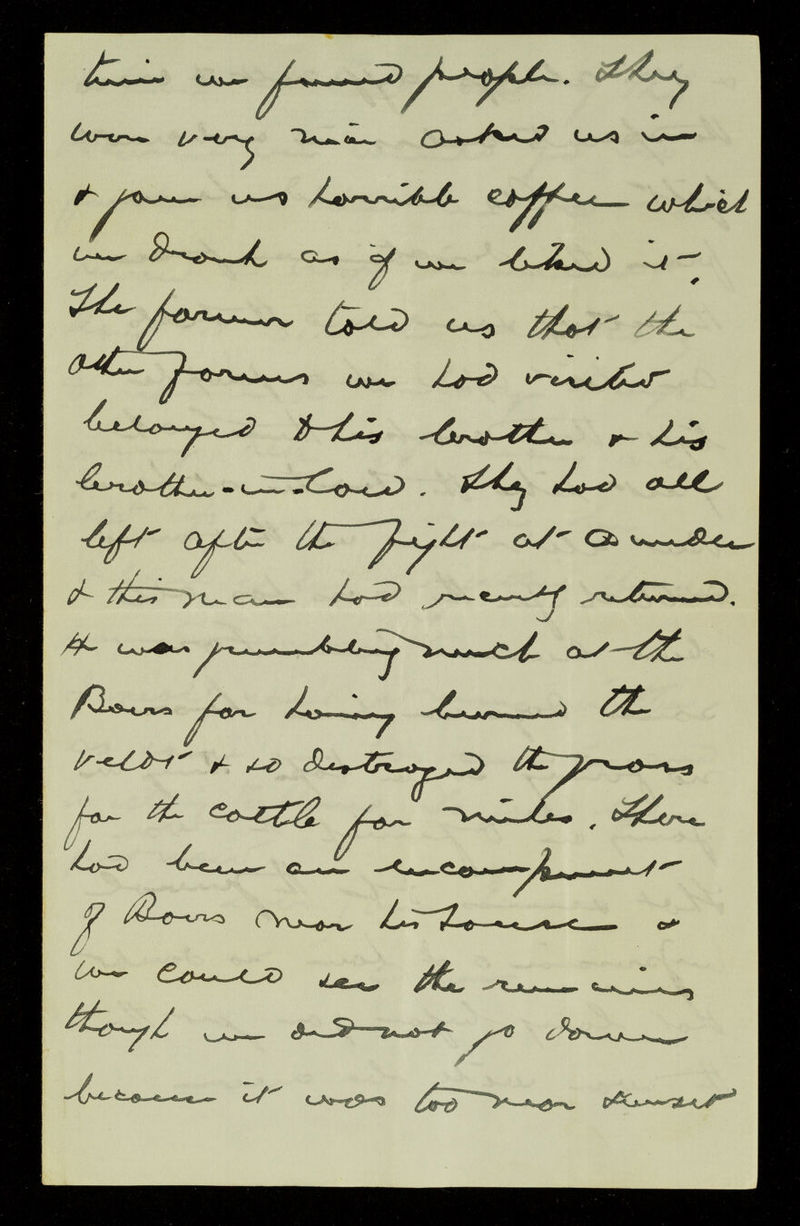 time we found people. They
were very nice asked us in
& gave us horrible coffee which
we drank as if we liked it.
The farmer told us that the
other farms we had visited
belonged to his brother & his
brother-in-law. They had all
left after the fight at Dundee
& this man had recently returned.
He was grumbling much at the
Boers for having burned the
veldt & so destroyed the grass
for the cattle for miles. There
had been an encampment
of Boers near his house &
we could see the remains
though we did not go down
because it was too near sunset